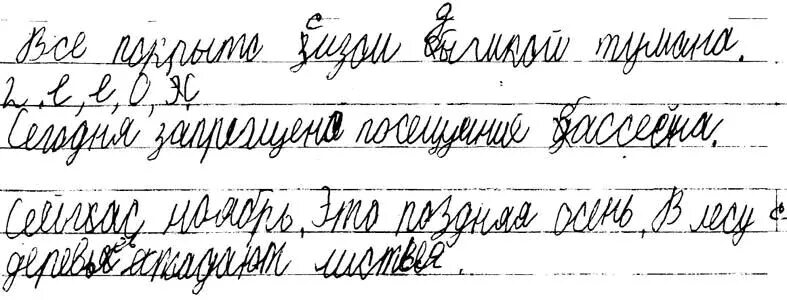 Все покрыто сизои дымкой тумана.
г, е, е, О, Ж
Сегодня запрещено посещуние бассеена.
Сейчас ноябрь. Это поздняя осень. В лесу с
деревьев опадают листья.